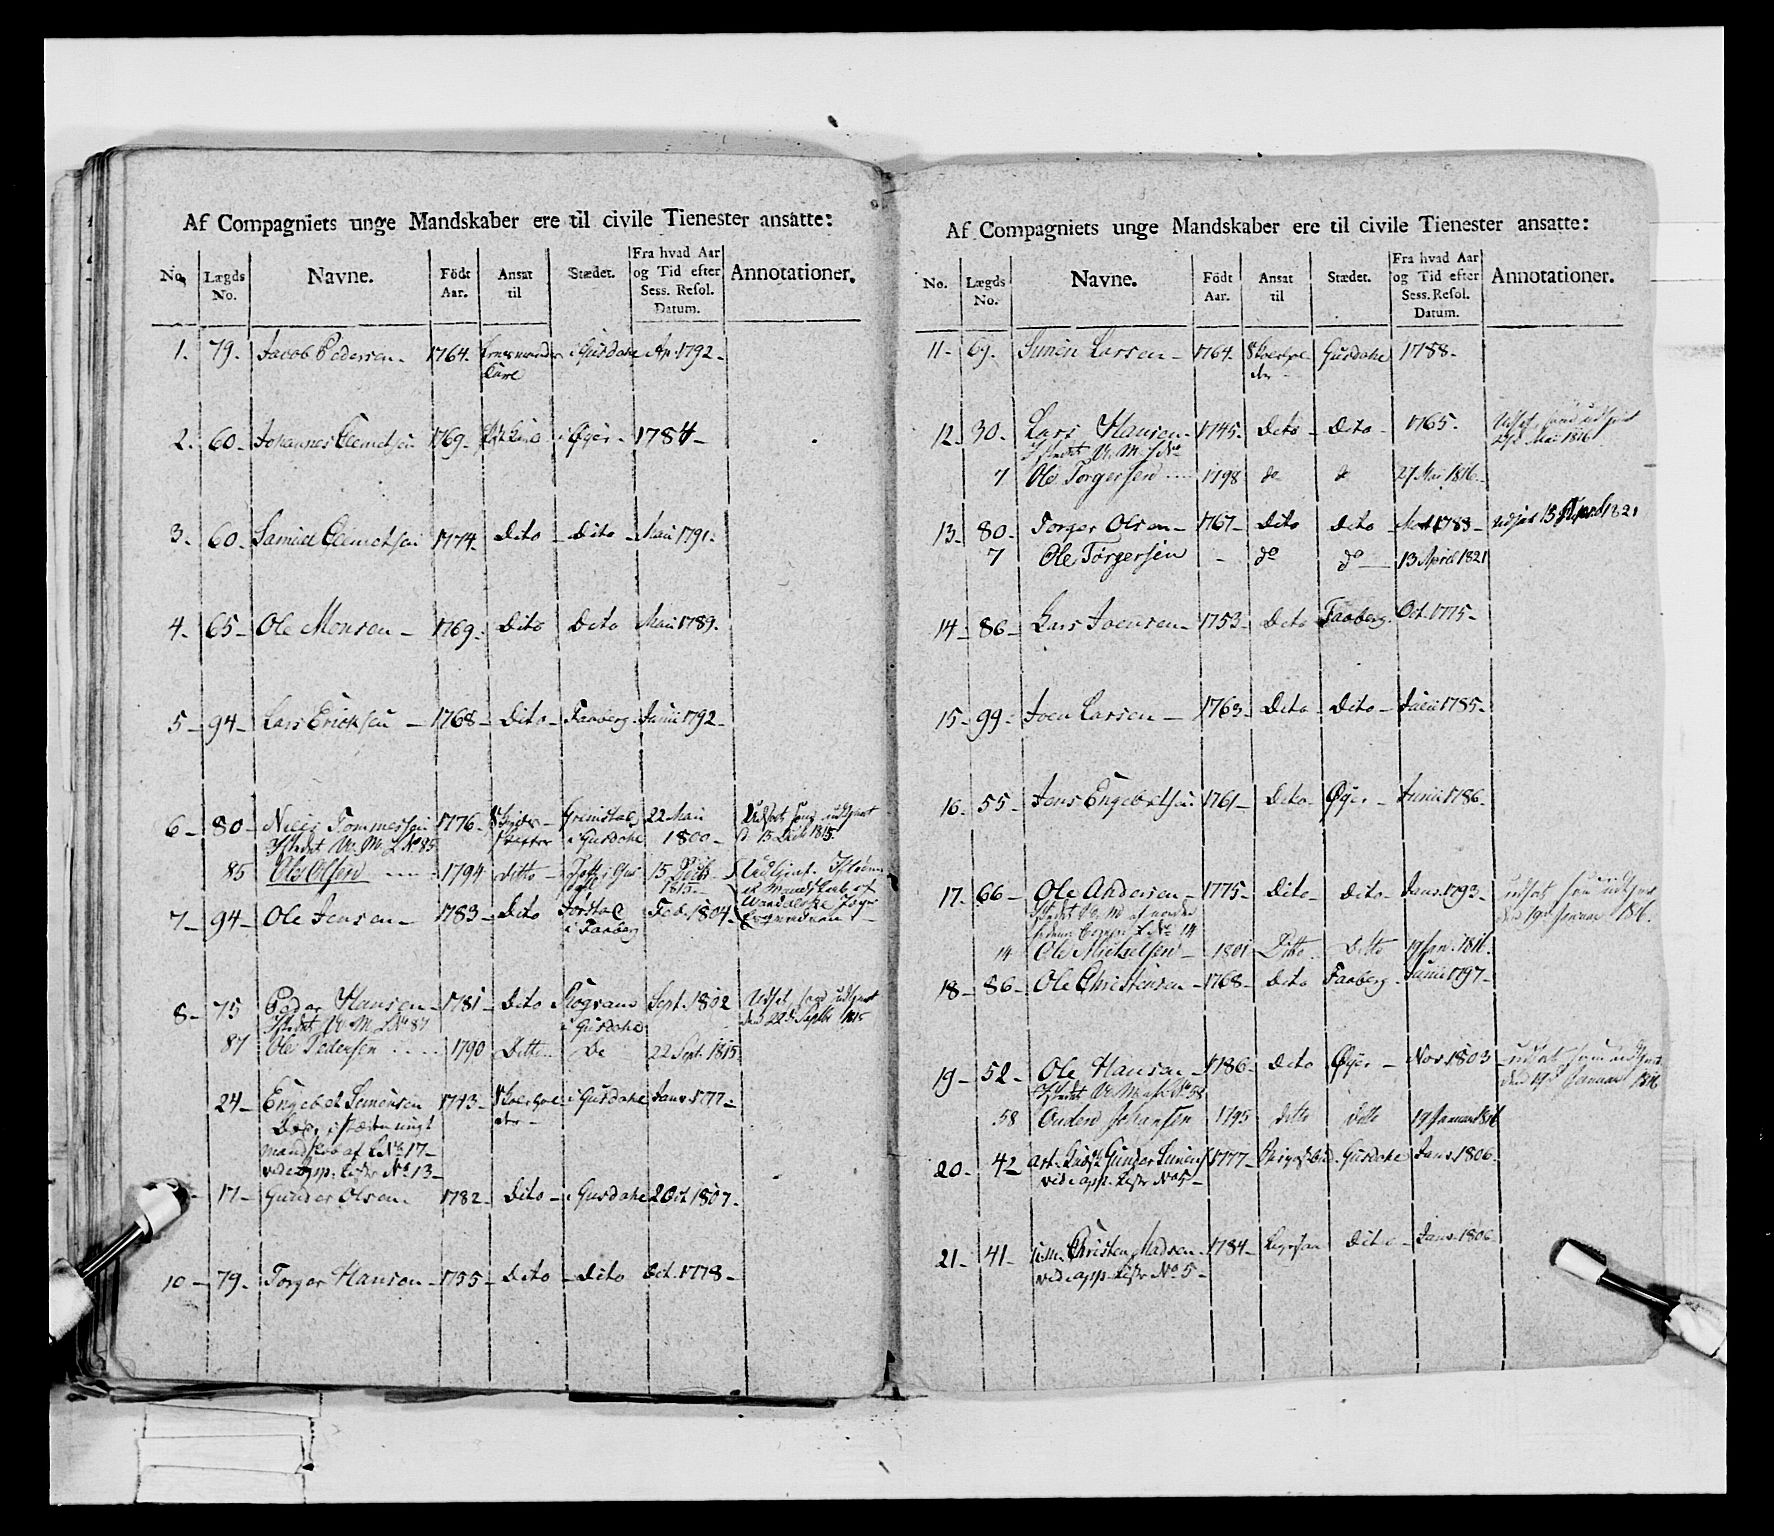 Af Compagniets unge Mandskaber ere til civile Tienester ansatte:
No. Lægds No. Navne. Födt Aar. Ansat til Stædet. Fra hvad Aar og Tid efter Sess. Resol. Datum. Annotationer.
1. 79. Jacob Pedersen 1764. i Gusdahl Ap. 1792
2. 60. Johannes 1769 i Øyer 1784
3. 60. Samuel 1774 Dito Dito Maii 1791
4. 65 Ole Monsen 1769 Dito Dito Maii 1789
5 94 Lars Ericksen 1768 Dito Faaberg Junii 1792
6 80 Niels Tommessen 1776 i Gusdahl 22 Maii 1800
Istedet U. M. L No 85
85 Ole Olsen 1794 Ditto 15 1815
7 94 Ole Jensen 1783 Dito i Faaberg Feb. 1804
8 75 Peder Hansen 1781 Dito i Gusdahl Sept. 1802 Udsat som udtjent den 22d Septbr 1815
Istedet U. M. L No 87
87 Ole Pedersen 1790 Ditto Do 22 Sept. 1815
24 Engebret Simensen 1743 i Gusdahl Janv. 1777
mandskab af L No 17
vide app. Listr No 13
17 Gunder Olsen 1782 Dito i Gusdahl 2 Oct. 1807
10 79. Torger Hansen 1755 Dito Dito Oct. 1778
Af Compagniets unge Mandskaber ere til civile Tienester ansatte:
No. Lægds No. Navne. Födt Aar. Ansat til Stædet. Fra hvad Aar og Tid efter Sess. Resol. Datum. Annotationer.
11 69. Simen Larsen 1764. Gusdahl 1788
12 30 Lars Hansen 1745. Dito Dito 1765. Udsat som udtjent 27d Mai 1816
Istedet U. M. L No
7 Ole Torgersen 1798 do do 27 Mai 1816
13 80 Torger Olsen 1767 Dito Dito 1783 Udsat 13 April 1821
7 Ole Torgersen do do 13 April 1821
14 86 Lars Joensen 1753 Dito Faaberg Oct. 1775
15 99 Joen Larsen 1763 Dito Dito Junii 1785
16 55 Jens Engebretsen 1761 Dito Øyer Junii 1786
17 66 Ole Andersen 1775 Dito Dito Janv. 1793 udsat som udtjent den 19d Januar 1816
Istedet U. M. af
L No 14
14 Ole Mickelsen 1801 Ditto Ditto 19 Jan. 1816
18 86 Ole Christensen 1768 Dito Faaberg Junii 1797
19 52 Ole Hansen 1786 Dito Øyer Nov. 1803 udsat som udtjent den 19d Januar 1816
Istedet U. M. af L No 58
58 Ouden Johansen 1795 Ditto Ditto 19 Januar 1816
20 42 Gunder Simens 1777 Gusdahl Janv. 1806
vide app. Listr No 5
21 41 u.m. Christen Madsen 1784 Dito Janv. 1806
vide app. Listr No 5